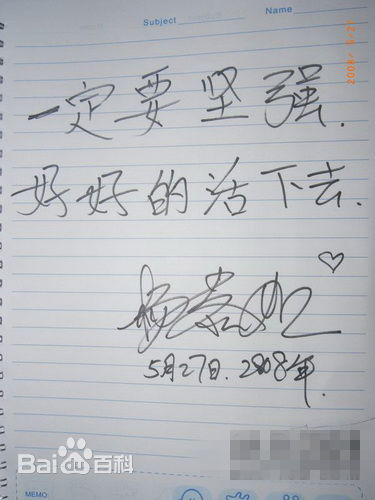 Subject
Name
2008/5/27
一定要坚强.
好好的活下去.
♡
5月27日.2008年.
MEMO:
Bai百科